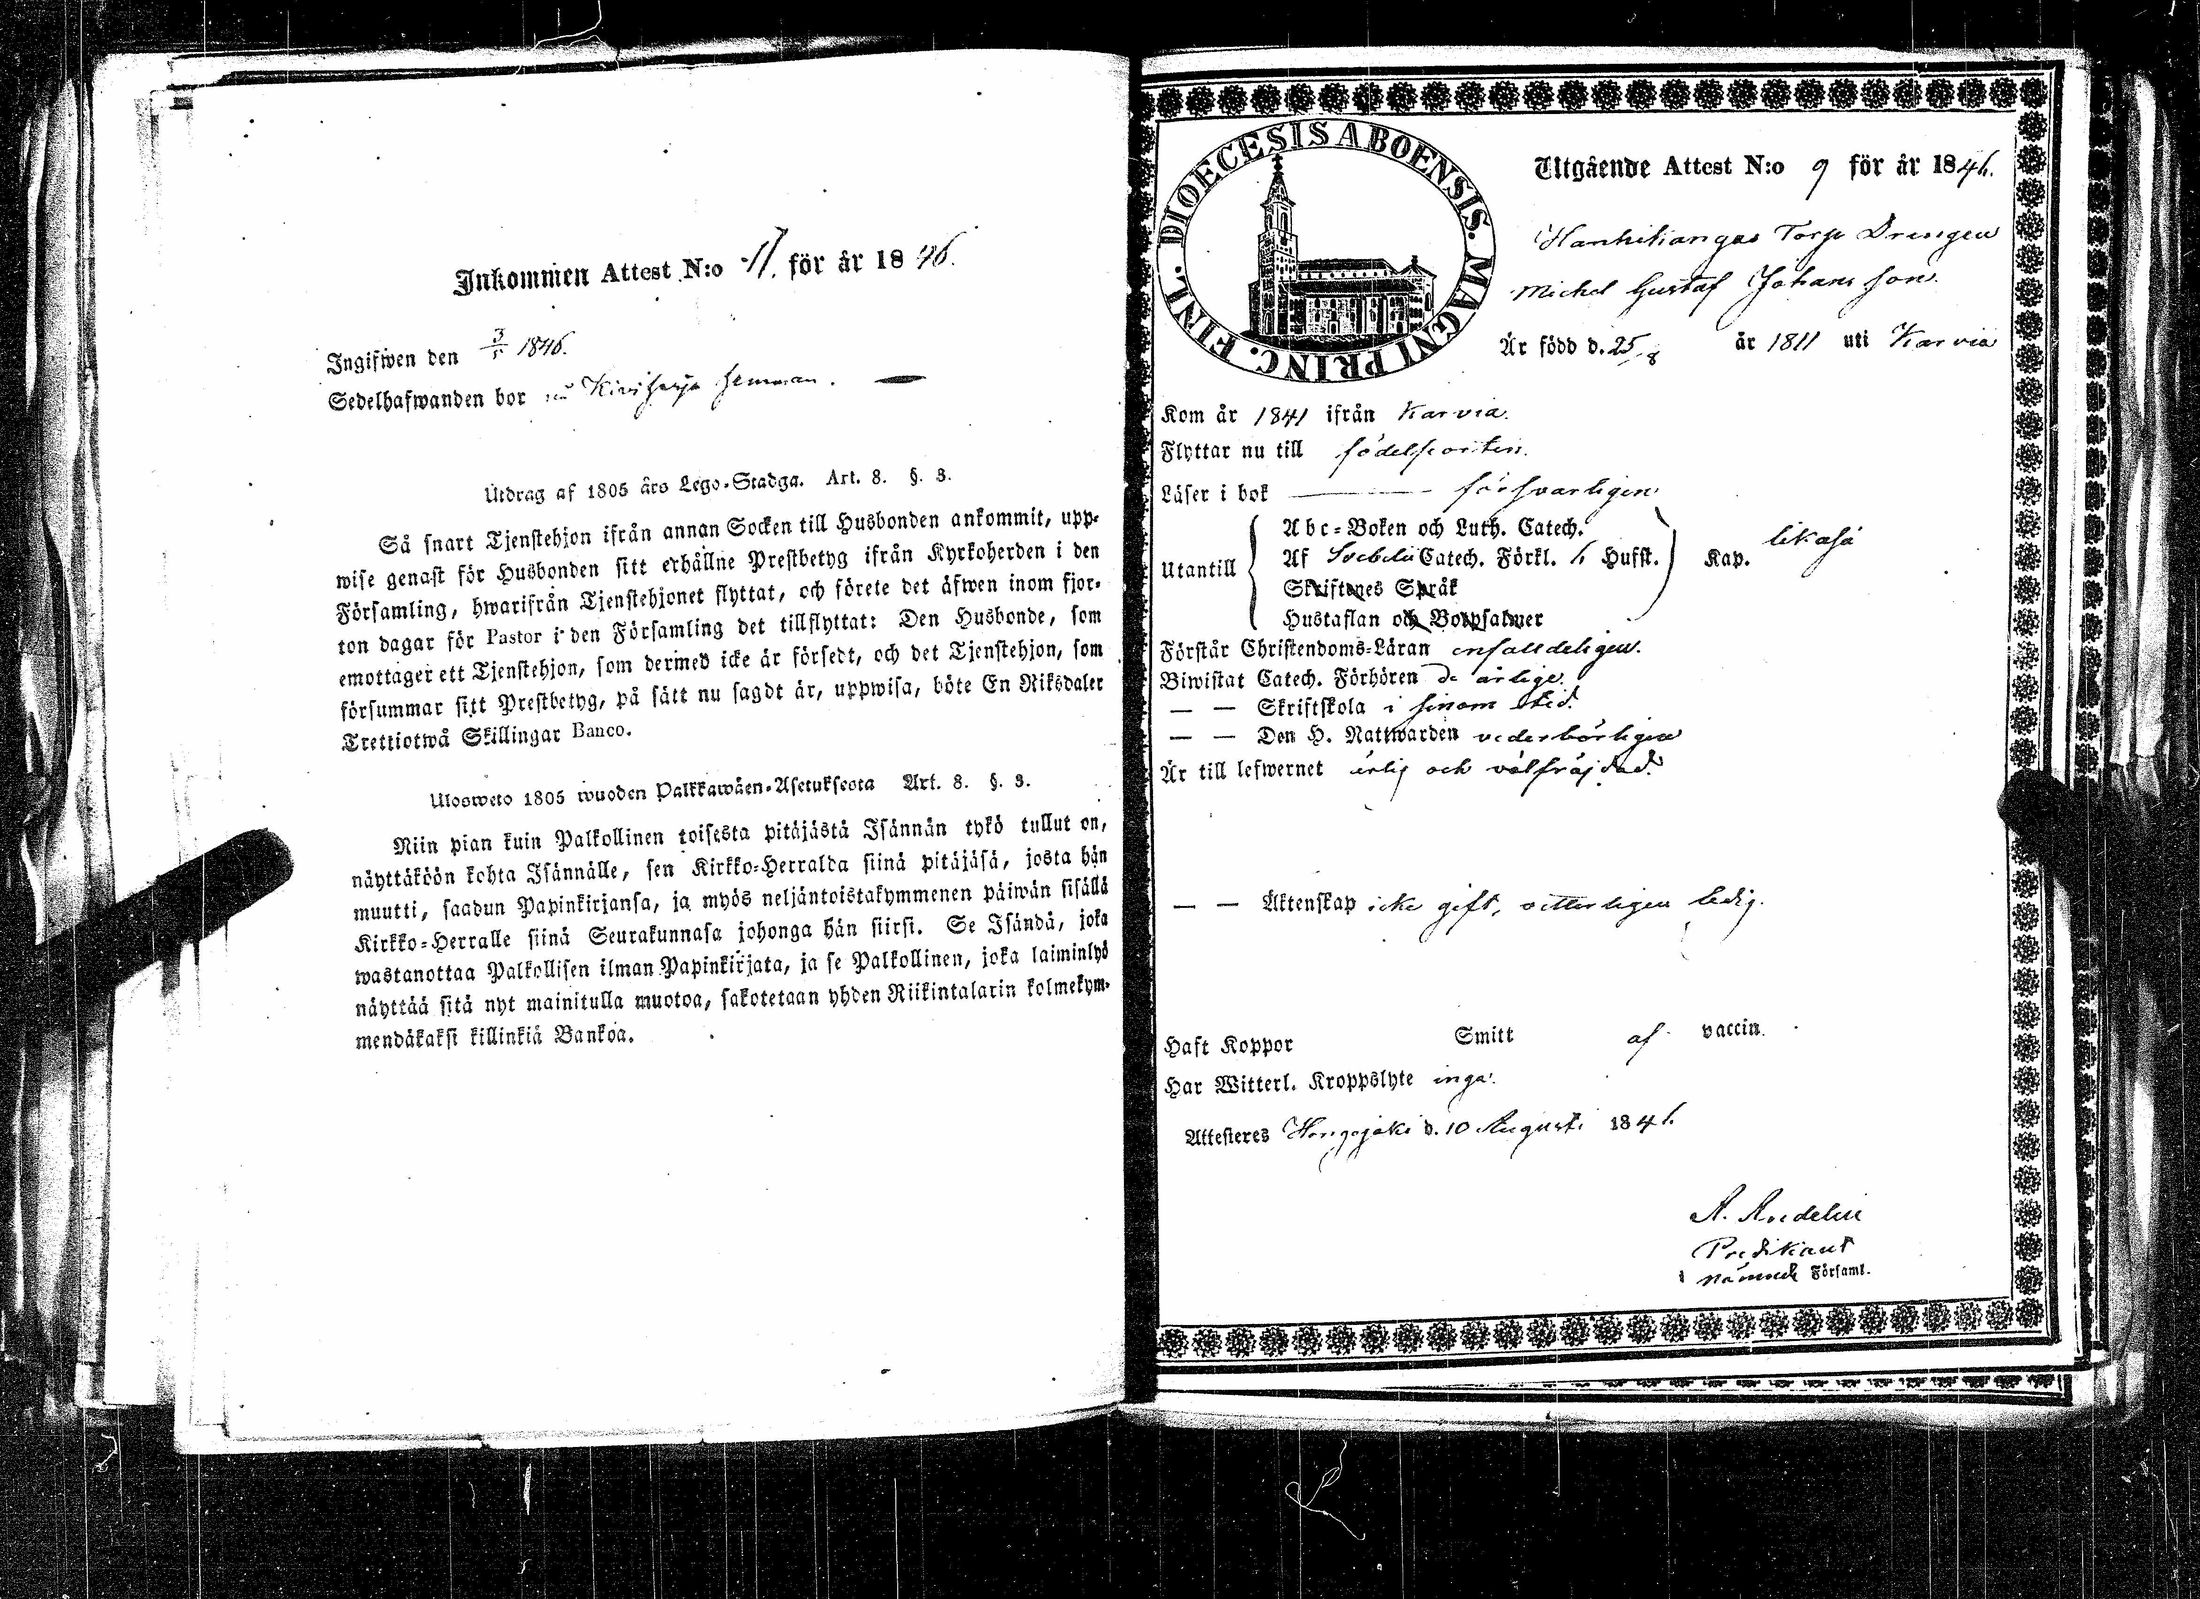 Inkommen Attest N:o 17. för år 1846.
Ingifwen den 3/5 1846.
Sedelhafwanden bor Kiviharju hemman.
Utdrag af 1805 års Lego-Stadga. Art. 8. §. 3.
Så snart Tjenstehjon ifrån annan Socken till Husbonden ankommit, upp-
wise genast för Husbonden sitt erhållne Prestbetyg ifrån Kyrkoherden i den
Församling, hwarifrån Tjenstehjonet flyttat, och förete det äfwen inom fjor-
ton dagar för Pastor i den Församling det tillflyttat: Den Husbonde, som
emottager ett Tjenstehjon, som dermed icke är försedt, och det Tjenstehjon, som
försummar sitt Prestbetyg, på sätt nu sagdt är, uppwisa, böte En Riksdaler
Trettiotwå Skillingar Banco.
Ulosweto 1805 wuoden Palkkawäen-Asetuksesta Art. 8. §. 3.
Niin pian kuin Palkollinen toisesta pitäjästä Isännän tykö tullut on,
näyttäköön kohta Isännälle, sen Kirkko-Herralda siinä pitäjäsä, josta hän
muutti, saadun Papinkirjansa, ja myös neljäntoistakymmenen päiwän sisällä
Kirkko-Herralle siinä Seurakunnasa johonga hän siirsi. Se Isändä, joka
wastanottaa Palkollisen ilman Papinkirjata, ja se Palkollinen, joka laiminlyö
näyttää sitä nyt mainitulla muotoa, sakotetaan yhden Riikintalarin kolmekym-
mendäkaksi killinkiä Bankoa.
DIOECESIS ABOENSIS. MAGNI PRINC. FINL.
Utgående Attest N:o 9 för år 1846.
Hanhikangas Torp Drengen
Michel Gustaf Johansson
Är född d. 25/8 år 1811 uti Karvia
Kom år 1841 ifrån Karvia.
Flyttar nu till födelseorten.
Läser i bok försvarligen
Utantill
Abc-Boken och Luth. Catech.
Af Svebelii Catech. Förkl. h Hufst.
Skriftenes Språk
Hustaflan och Botpsalmer
Kap. likaså
Förstår Christendoms-Läran enfalldeligen.
Biwistat Catech. Förhören de årlige.
— — Skriftskola i sinom tid.
— — Den H. Nattwarden vederbörligen
Är till lefwernet ärlig och välfräjdad.
— — Äktenskap icke gift, vitterligen ledig.
Haft Koppor Smitt af vaccin.
Har Witterl. Kroppslyte inga.
Attesteres Hongojoki d. 10 Augusti 1846.
A. Andelin
Predikant
i nämnde Församl.